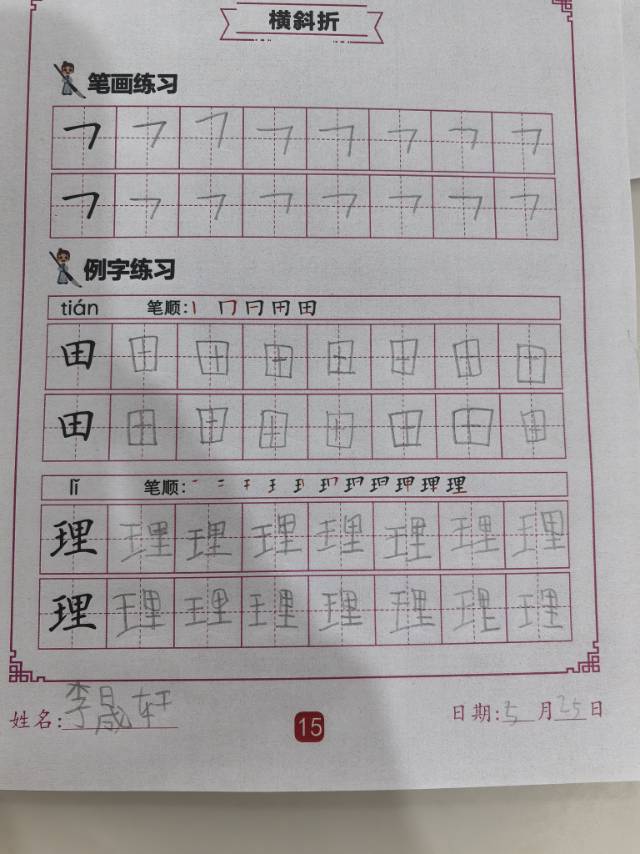 横斜折
笔画练习
㇇ ㇇ ㇇ ㇇ ㇇ ㇇ ㇇ ㇇
㇇ ㇇ ㇇ ㇇ ㇇ ㇇ ㇇ ㇇
例字练习
tián 笔顺: 丨 冂 日 田 田
田 田 田 田 田 田 田 田
田 田 田 田 田 田 田 田
lǐ 笔顺:
理 理 理 理 理 理 理 理
理 理 理 理 理 理 理 理
姓名: 李晟轩 15 日期: 5 月 25 日